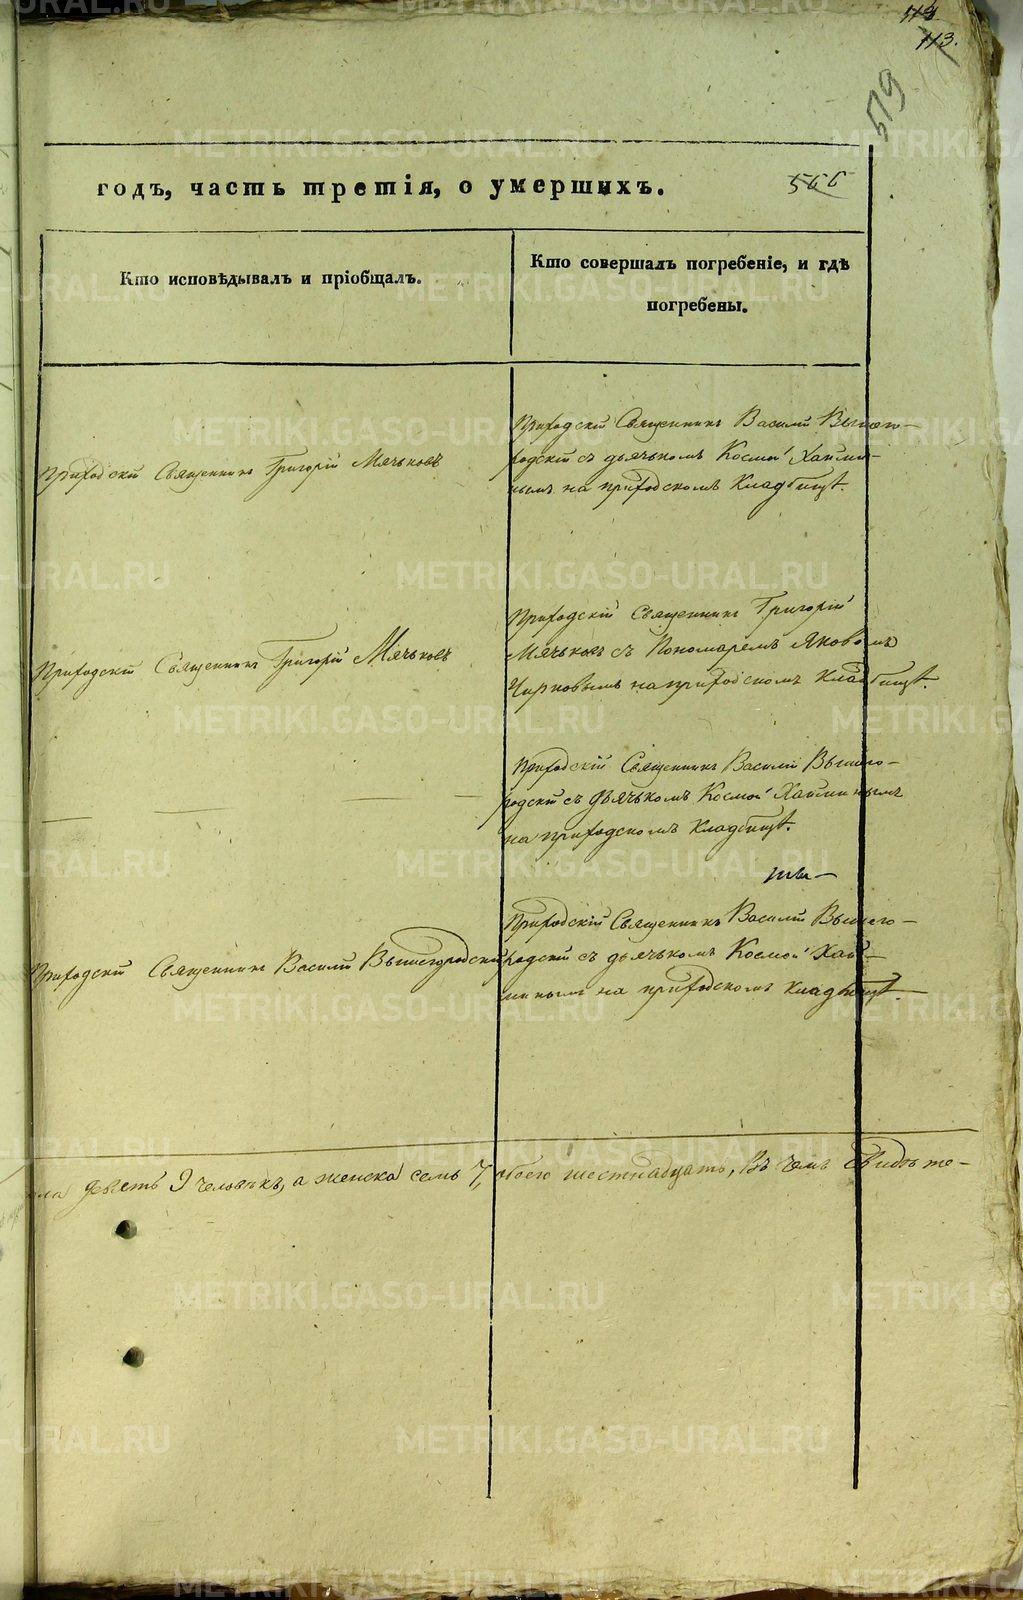 113.
519
годъ, часть третія, о умершихъ.
566
Кто исповѣдывалъ и пріобщалъ.
Кто совершалъ погребеніе, и гдѣ
погребены.
Приходскій Священникъ Григорій Мячьковъ
Приходскій Священникъ Василій Вышего-
родскій съ дьячькомъ Космой
нымъ на приходскомъ Кладбищѣ.
Приходскій Священникъ Григорій Мячьковъ
Приходскій Священникъ Григорій
Мячьковъ съ Пономаремъ Яковомъ
Чирковымъ на приходскомъ Кладбищѣ.
Приходскій Священникъ Василій Вышего-
родскій съ дьячькомъ Космой
на приходскомъ Кладбищѣ.
Приходскій Священникъ Василій Вышегородскій
Приходскій Священникъ Василій Вышего-
родскій съ дьячькомъ Космой
на приходскомъ кладбищѣ.
ла девять 9 человѣкъ, а женска семь 7, обоего шестнадцать, въ чемъ свидѣте-
METRIKI.GASO-URAL.RU